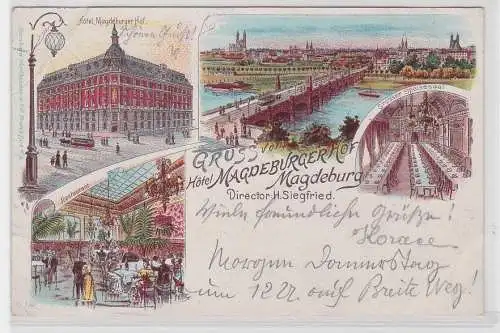 Hôtel Magdeburger Hof.
Grosser Speisesaal
GRUSS VOM
Hôtel MAGDEBURGER HOF
Magdeburg
Director H. Siegfried.
Restaurant
Viele freundliche Grüße!
Horace
Morgen Donnerstag
um 12 auf Breite Weg!